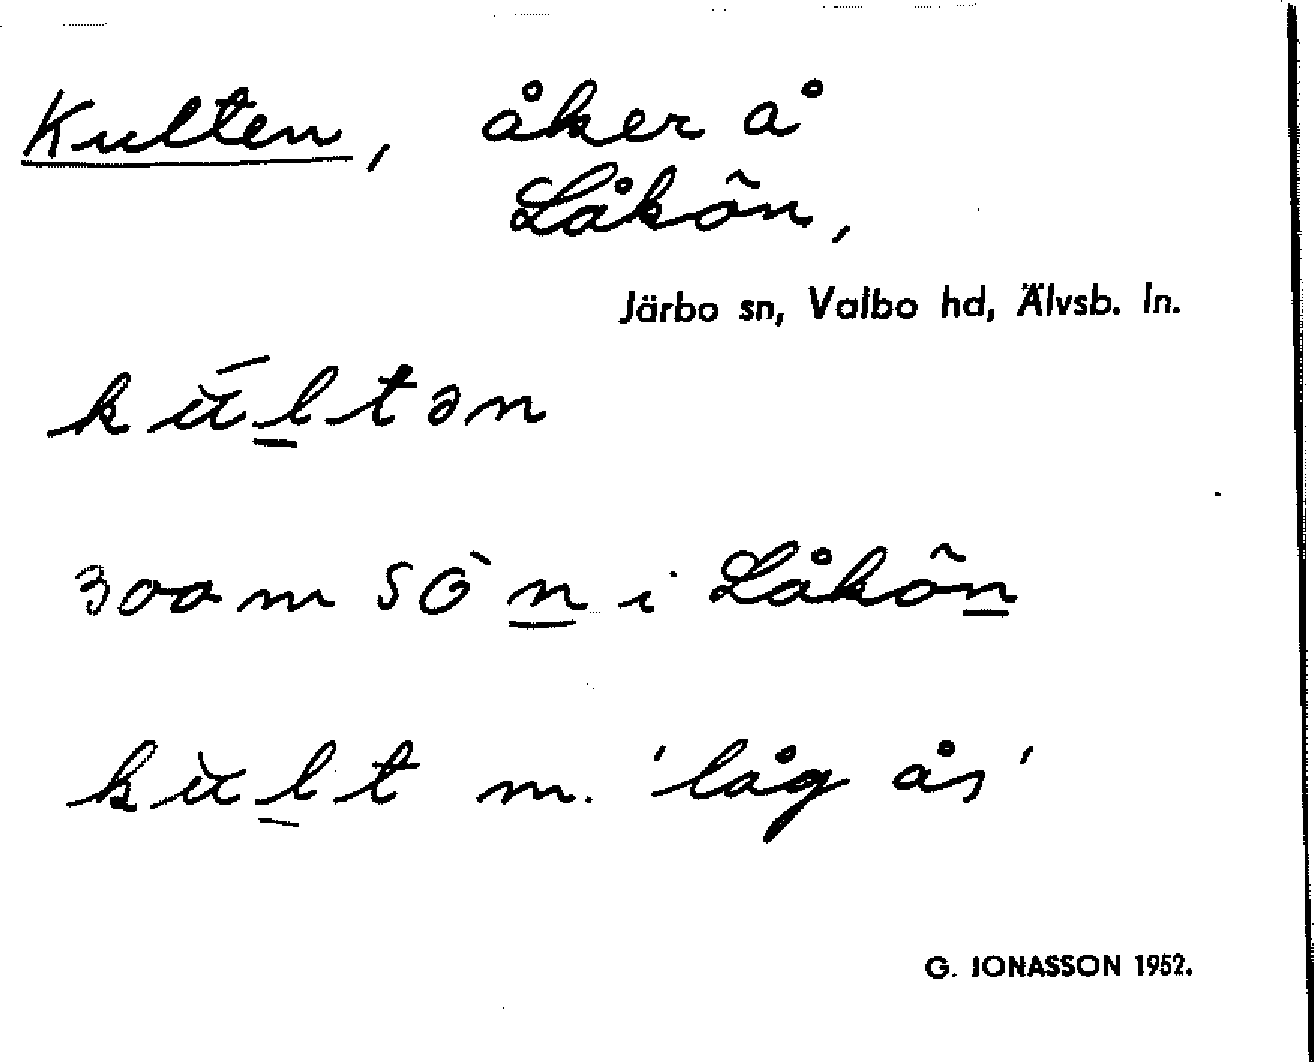 Kulten, åker å
Låkön,
Järbo sn, Valbo hd, Älvsb. ln.
kul̲tən
300 m SO n̲ i Låkön̲
kùl̲t m. 'låg ås'
G. JONASSON 1952.